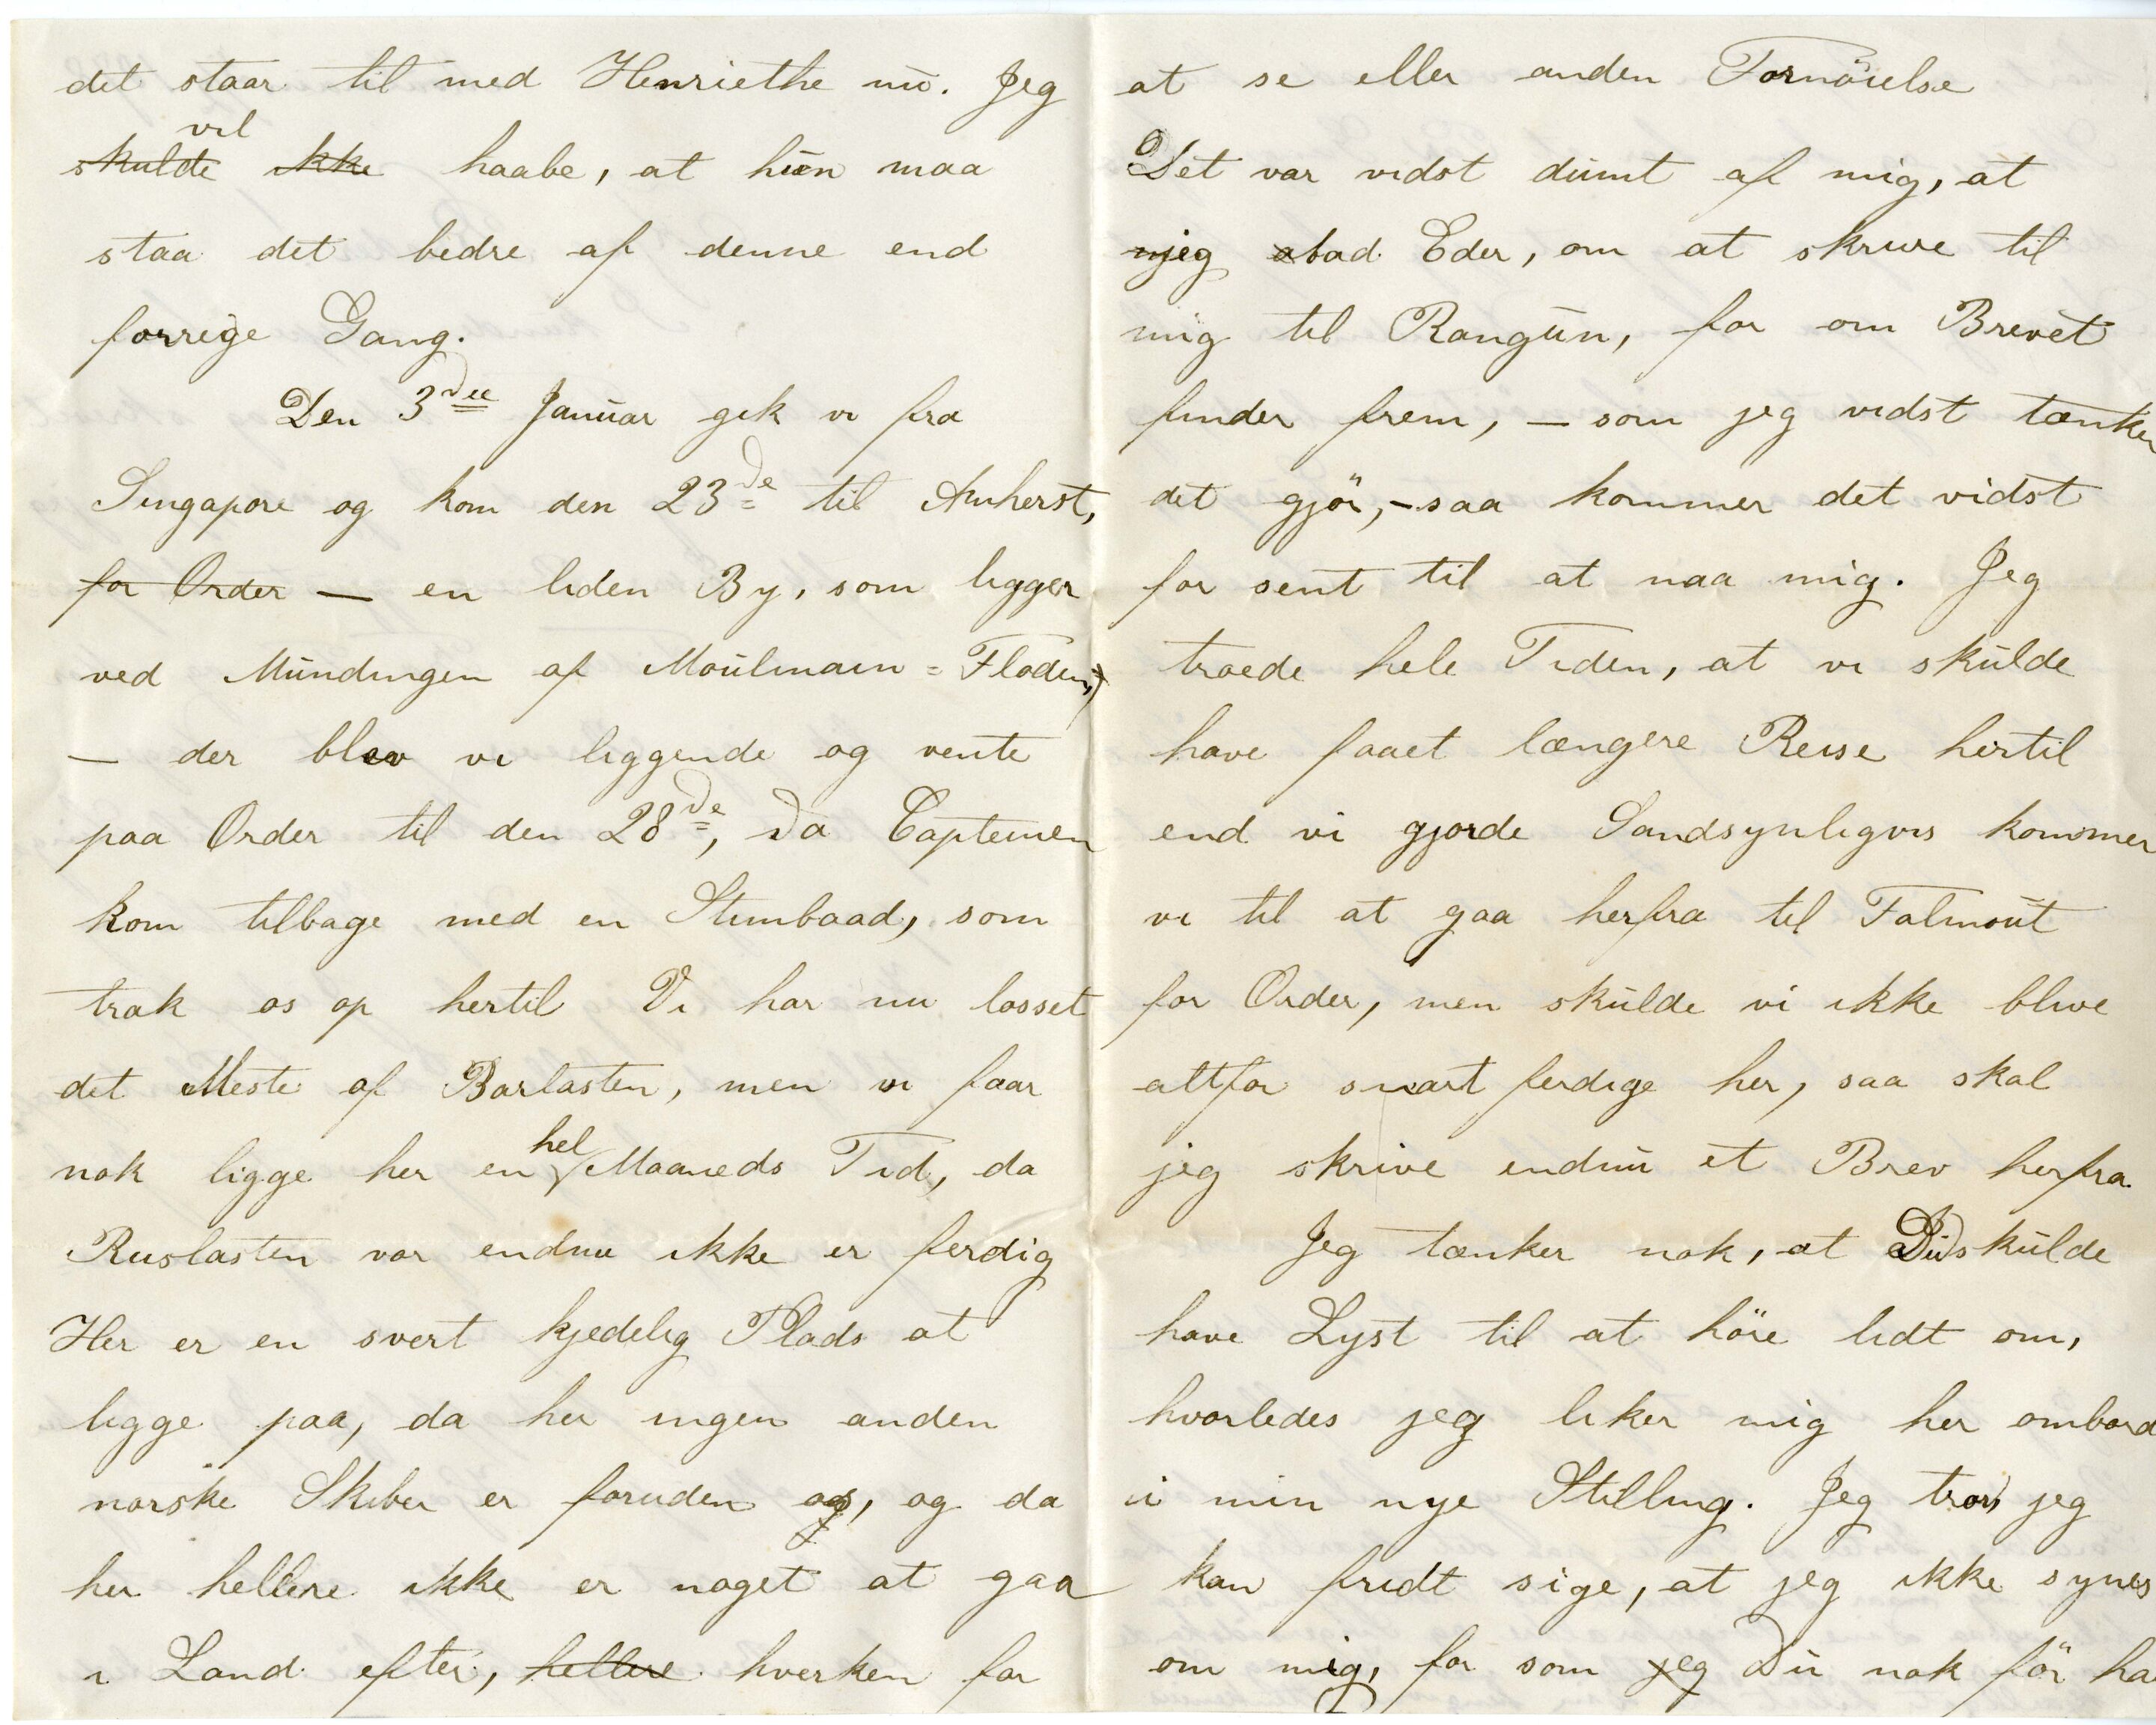 det staar til med Henriethe nu. Jeg
vil
skulde ikke haabe, at hun maa
staa det bedre af denne end
forrige Gang.
Den 3die Januar gik vi fra
Singapore og kom den 23de til Amherst,
for Order — en liden By, som ligger
ved Mundingen af Moulmain=Floden,
— der blev vi liggende og vente
paa Order til den 28de, da Capteinen
kom tilbage med en Stimbaad, som
trak os op hertil Vi har nu losset
det Meste af Barlasten, men vi faar
hel
nok ligge her en Maaneds Tid, da
Rislasten vor endnu ikke er ferdig
Her er en svert kjedelig Plads at
ligge paa, da her ingen anden
norske Skibe er foruden os, og da
her hellere ikke er noget at gaa
i Land efter, hellere hverken for
at se eller anden Fornöielse
Det var vidst dumt af mig, at
jeg bad Eder, om at skrive til
mig til Rangun, for om Brevet
finder frem, — som jeg vidst tænker
det gjör, — saa kommer det vidst
for sent til at naa mig. Jeg
troede hele Tiden, at vi skulde
have faaet længere Reise hertil
end vi gjorde Sandsynligvis kommer
vi til at gaa herfra til Falmout
for Order, men skulde vi ikke blive
altfor snart ferdige her, saa skal
jeg skrive endnu et Brev herfra.
Jeg tænker nok, at Du skulde
have Lyst til at höre lidt om,
hvorledes jeg liker mig her ombord
i min nye Stilling. Jeg tror, jeg
kan fridt sige, at jeg ikke synes
om mig, for som jeg Du nok för ha